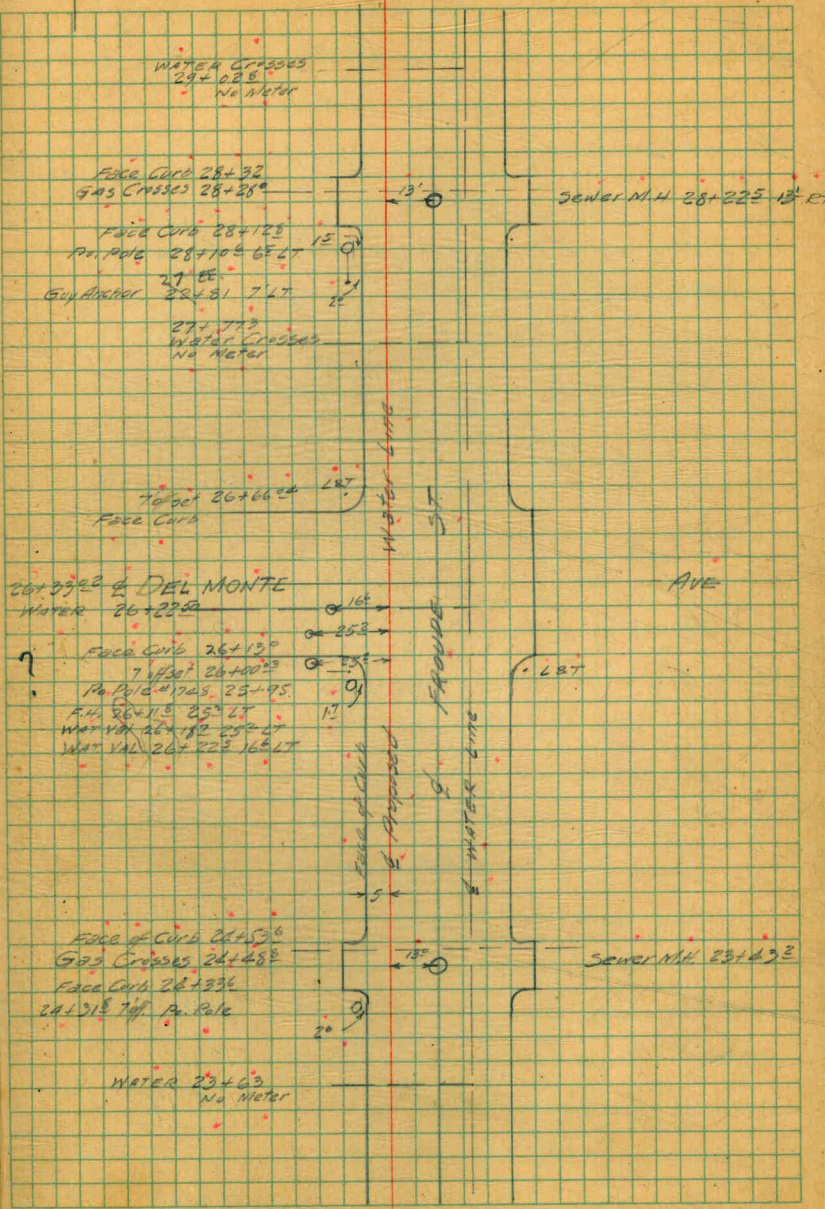 WATER Crosses
29+02⁸
No Meter
Face Curb 28+32
Gas Crosses 28+28⁰
13'
Sewer M.H 28+22⁵ 13' Rt
Face Curb 28+12⁸
Po. Pole 28+10⁶ 6⁵ LT
1⁵
27
Guy Anchor 28+81 7' LT
2⁰
27+77³
Water Crosses
No Meter
Water Line
ST
7 offset 26+66²⁴
L&T
Face Curb
26+33²² ℄ DEL MONTE
AVE
WATER 26+22⁵⁰
16⁶
25²
Face Curb 26+13⁰
25²
?
7 offset 26+00⁰³
L&T
Po. Pole #1768 25+95
1⁷
F.H. 26+11⁸ 25² LT
WAT VAL 26+18² 25² LT
WAT VAL 26+22⁵ 16⁶ LT
FROUDE
℄
Face of Curb
℄ Proposed
℄ WATER Line
5
Face of Curb 24+53⁶
Gas Crosses 24+48⁵
13⁰
Sewer M.H. 23+43²
Face Curb 24+33⁶
24+31⁸ 7 off. Po. Pole
2⁰
WATER 23+63
No Meter